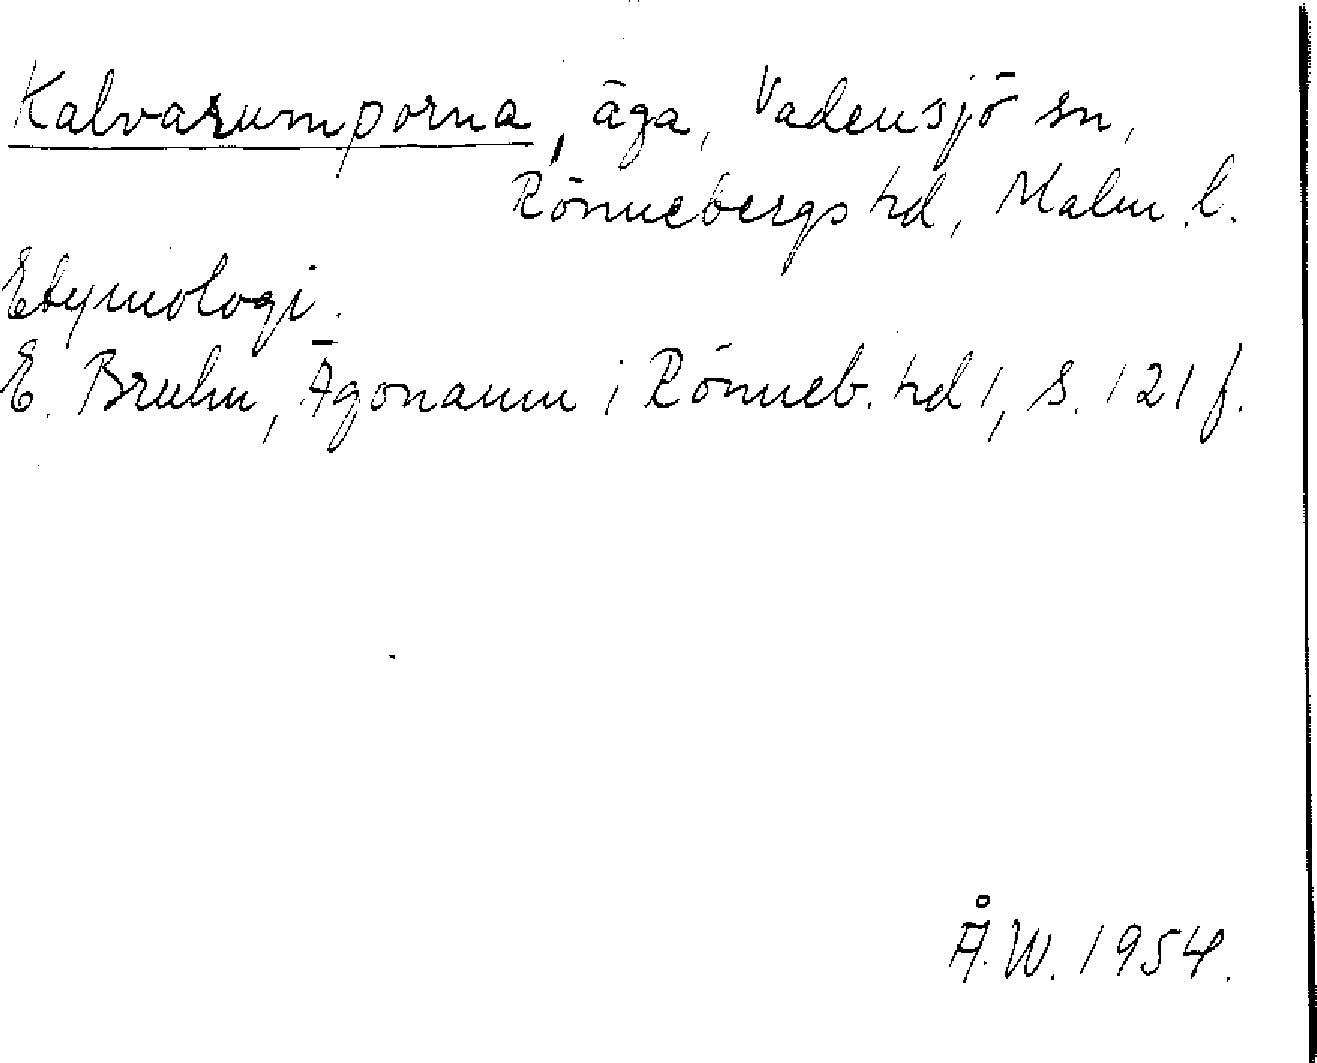 Kalvarumporna, äga, Vadensjö sn,
Rönnebergs hd, Malm. l.
Etymologi.
E. Bruhn, Ägonamn i Rönneb. hd 1, S. 121 f.
Å.W. 1954.